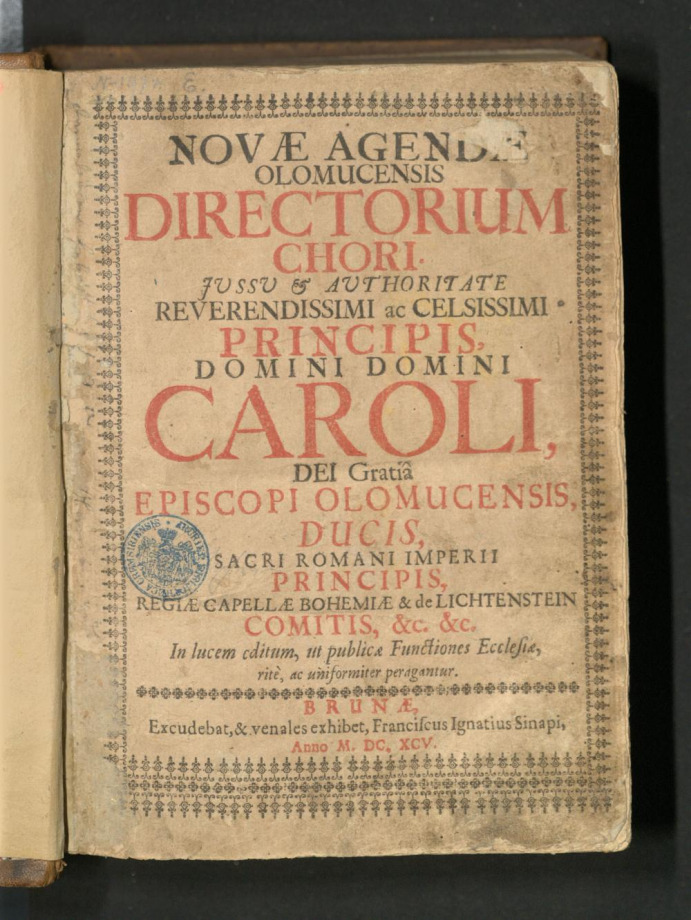 NOVÆ AGENDÆ
OLOMUCENSIS
DIRECTORIUM
CHORI.
JVSSV & AVTHORITATE
REVERENDISSIMI ac CELSISSIMI
PRINCIPIS,
DOMINI DOMINI
CAROLI,
DEI Gratiâ
EPISCOPI OLOMUCENSIS,
DUCIS,
SACRI ROMANI IMPERII
PRINCIPIS,
REGIÆ CAPELLÆ BOHEMIÆ & de LICHTENSTEIN
COMITIS, &c. &c.
In lucem editum, ut publicæ Functiones Ecclesiæ,
ritè, ac uniformiter peragantur.
BRUNÆ,
Excudebat, & venales exhibet, Franciſcus Ignatius Sinapi,
Anno M. DC. XCV.